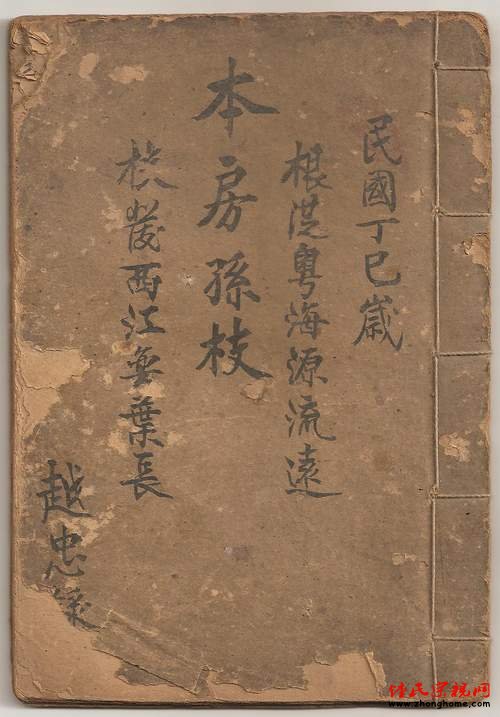 民國丁巳歲
根粵海源流遠
本房孫枝
發西江葉長
越忠
www.zhonghome.com